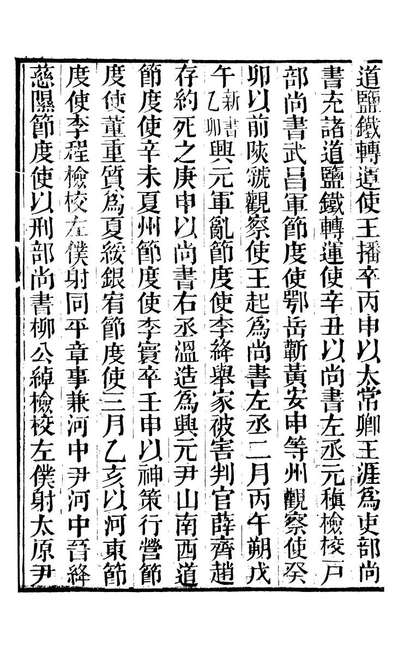 道鹽鐵轉運使王播卒丙申以太常卿王涯爲吏部尚
書充諸道鹽鐵轉運使辛丑以尚書左丞元稹檢校戶
部尚書武昌軍節度使鄂岳蘄黃安申等州觀察使癸
卯以前陝虢觀察使王起爲尚書左丞二月丙午朔戊
午新書乙卯興元軍亂節度使李絳舉家被害判官薛齊趙
存約死之庚申以尚書右丞溫造爲興元尹山南西道
節度使辛未夏州節度使李寰卒壬申以神策行營節
度使董重質爲夏綏銀宥節度使三月乙亥以河東節
度使李程檢校左僕射同平章事兼河中尹河中晉絳
慈隰節度使以刑部尚書柳公綽檢校左僕射太原尹